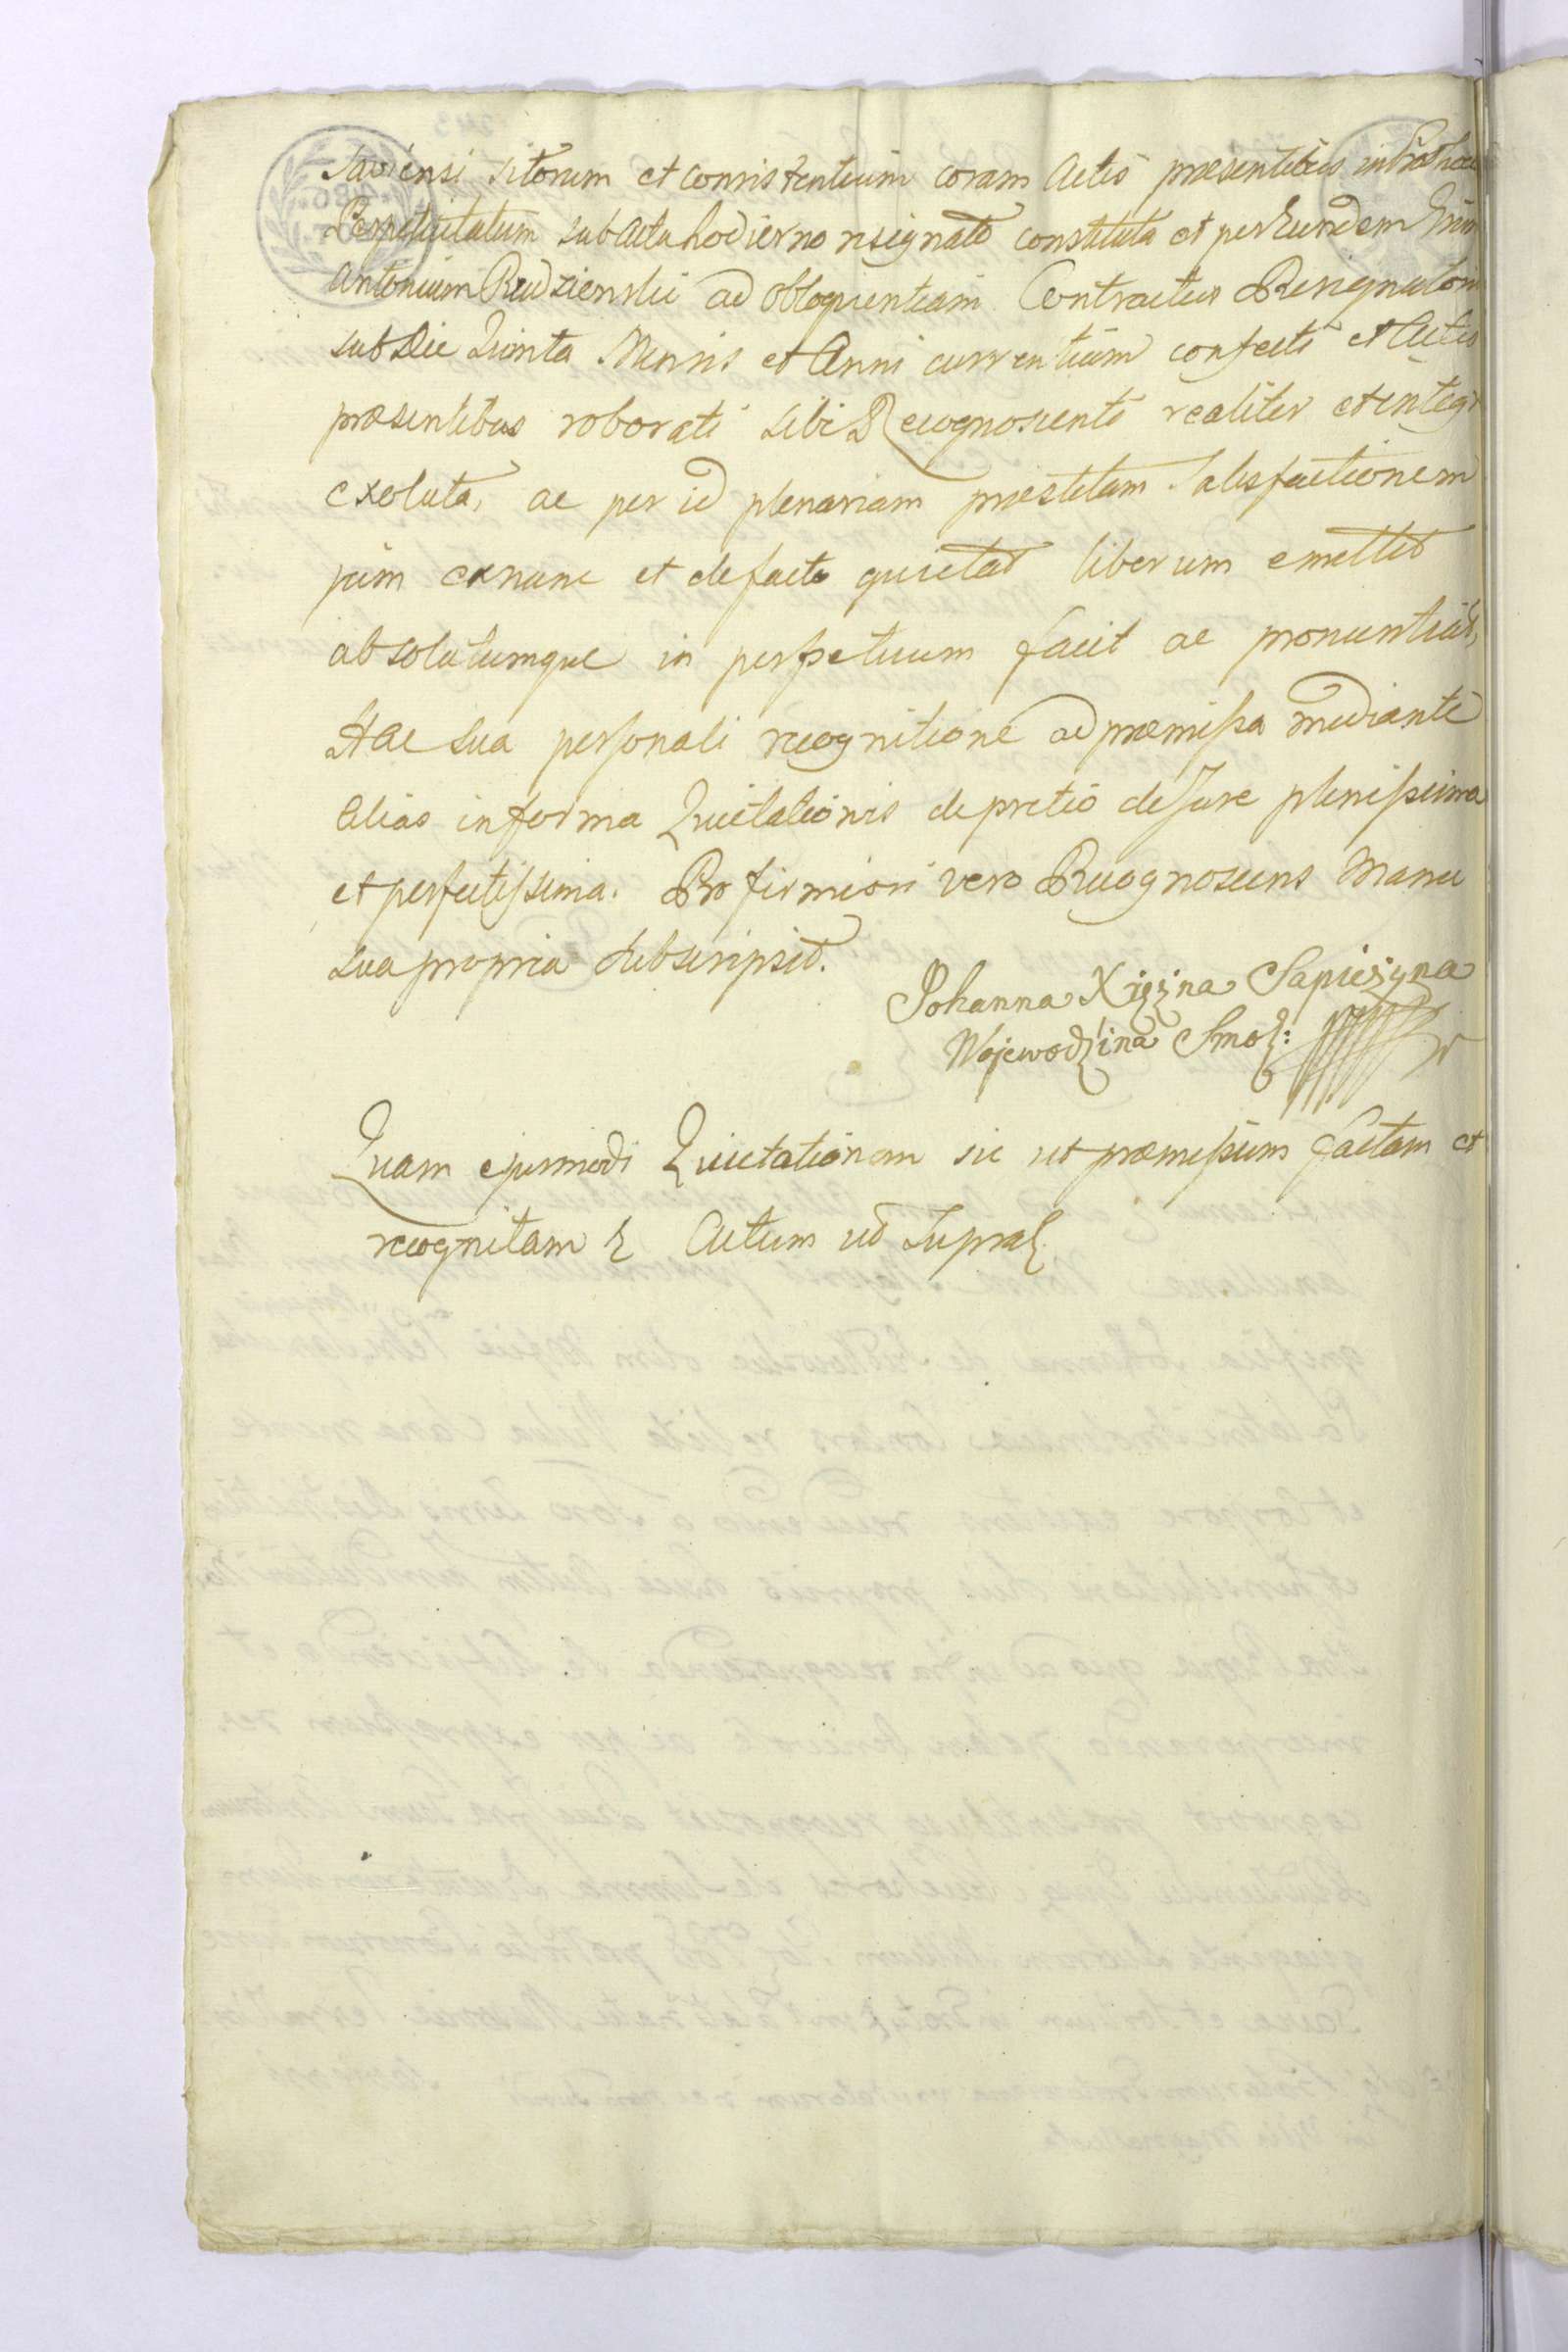 Saviensi sitorum et consistentium coram Actis præsentibus
Perpetuitatum sub Actu hodierno resignato constituta et per Eundem
Antonium Rudzienski ad obloquentiam Contractus Resignatorii
sub Die Quinta Mensis et Anni currentium confecti et Actis
præsentibus roborati sibi Recognoscenti realiter et integre
exoluta, ac per id plenariam præstitam Satisfactionem
jam exnunc et defacto quietat liberum emittit
absolutumque in perpetuum facit ac pronuntiat,
Hac sua personali recognitione ad præmissa mediante
Alias in forma Quietationis de pretio de Jure plenissima
et perfectissima. Pro firmiori vero Recognoscens Manu
sua propria subscripsit.
Johanna Xiężna Sapieżyna
Wojewodzina Smol:
Quam ejusmodi Quietationem sic ut præmissum factam et
recognitam Actum ut Supra